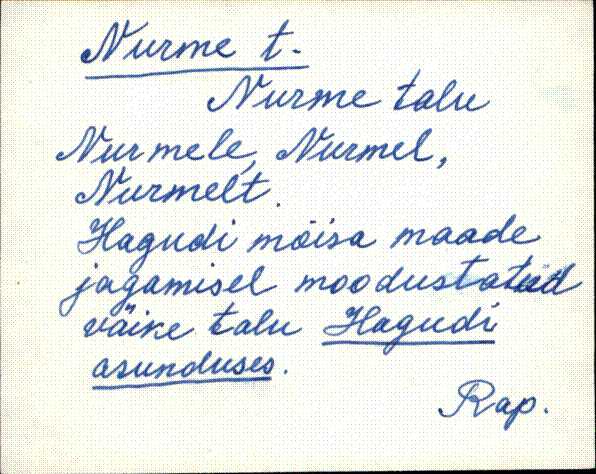 Nurme t.
Nurme talu
Nurmele, Nurmel,
Nurmelt.
Hagudi mõisa maade
jagamisel moodustatud
väike talu Hagudi
asunduses.
Rap.